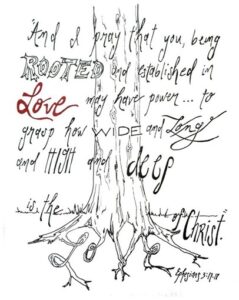 "And I pray that you, being
ROOTED and established in
Love may have power... to
grasp how WIDE and Long
and HIGH and deep
is the of Christ.
Ephesians 3:17-18